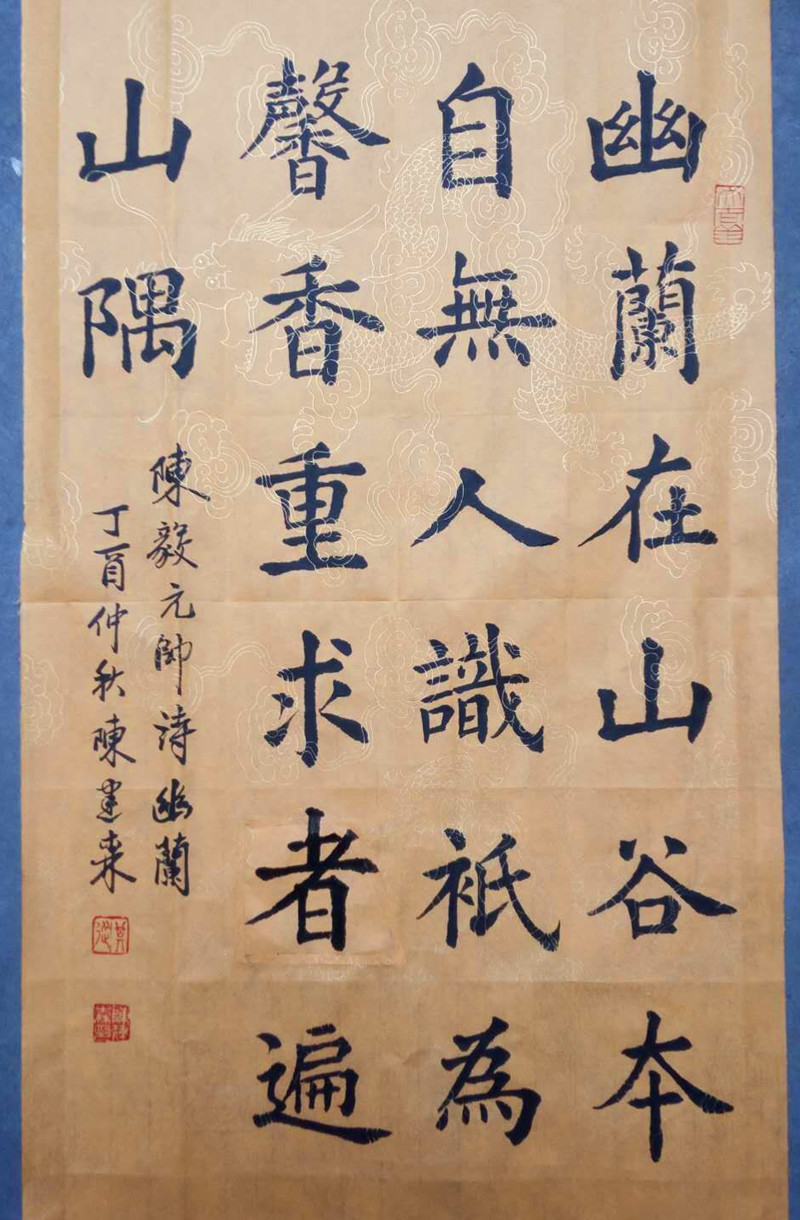 幽蘭在山谷本
自無人識祇為
馨香重求者遍
山隅
陳毅元帥詩幽蘭
丁酉仲秋陳建來